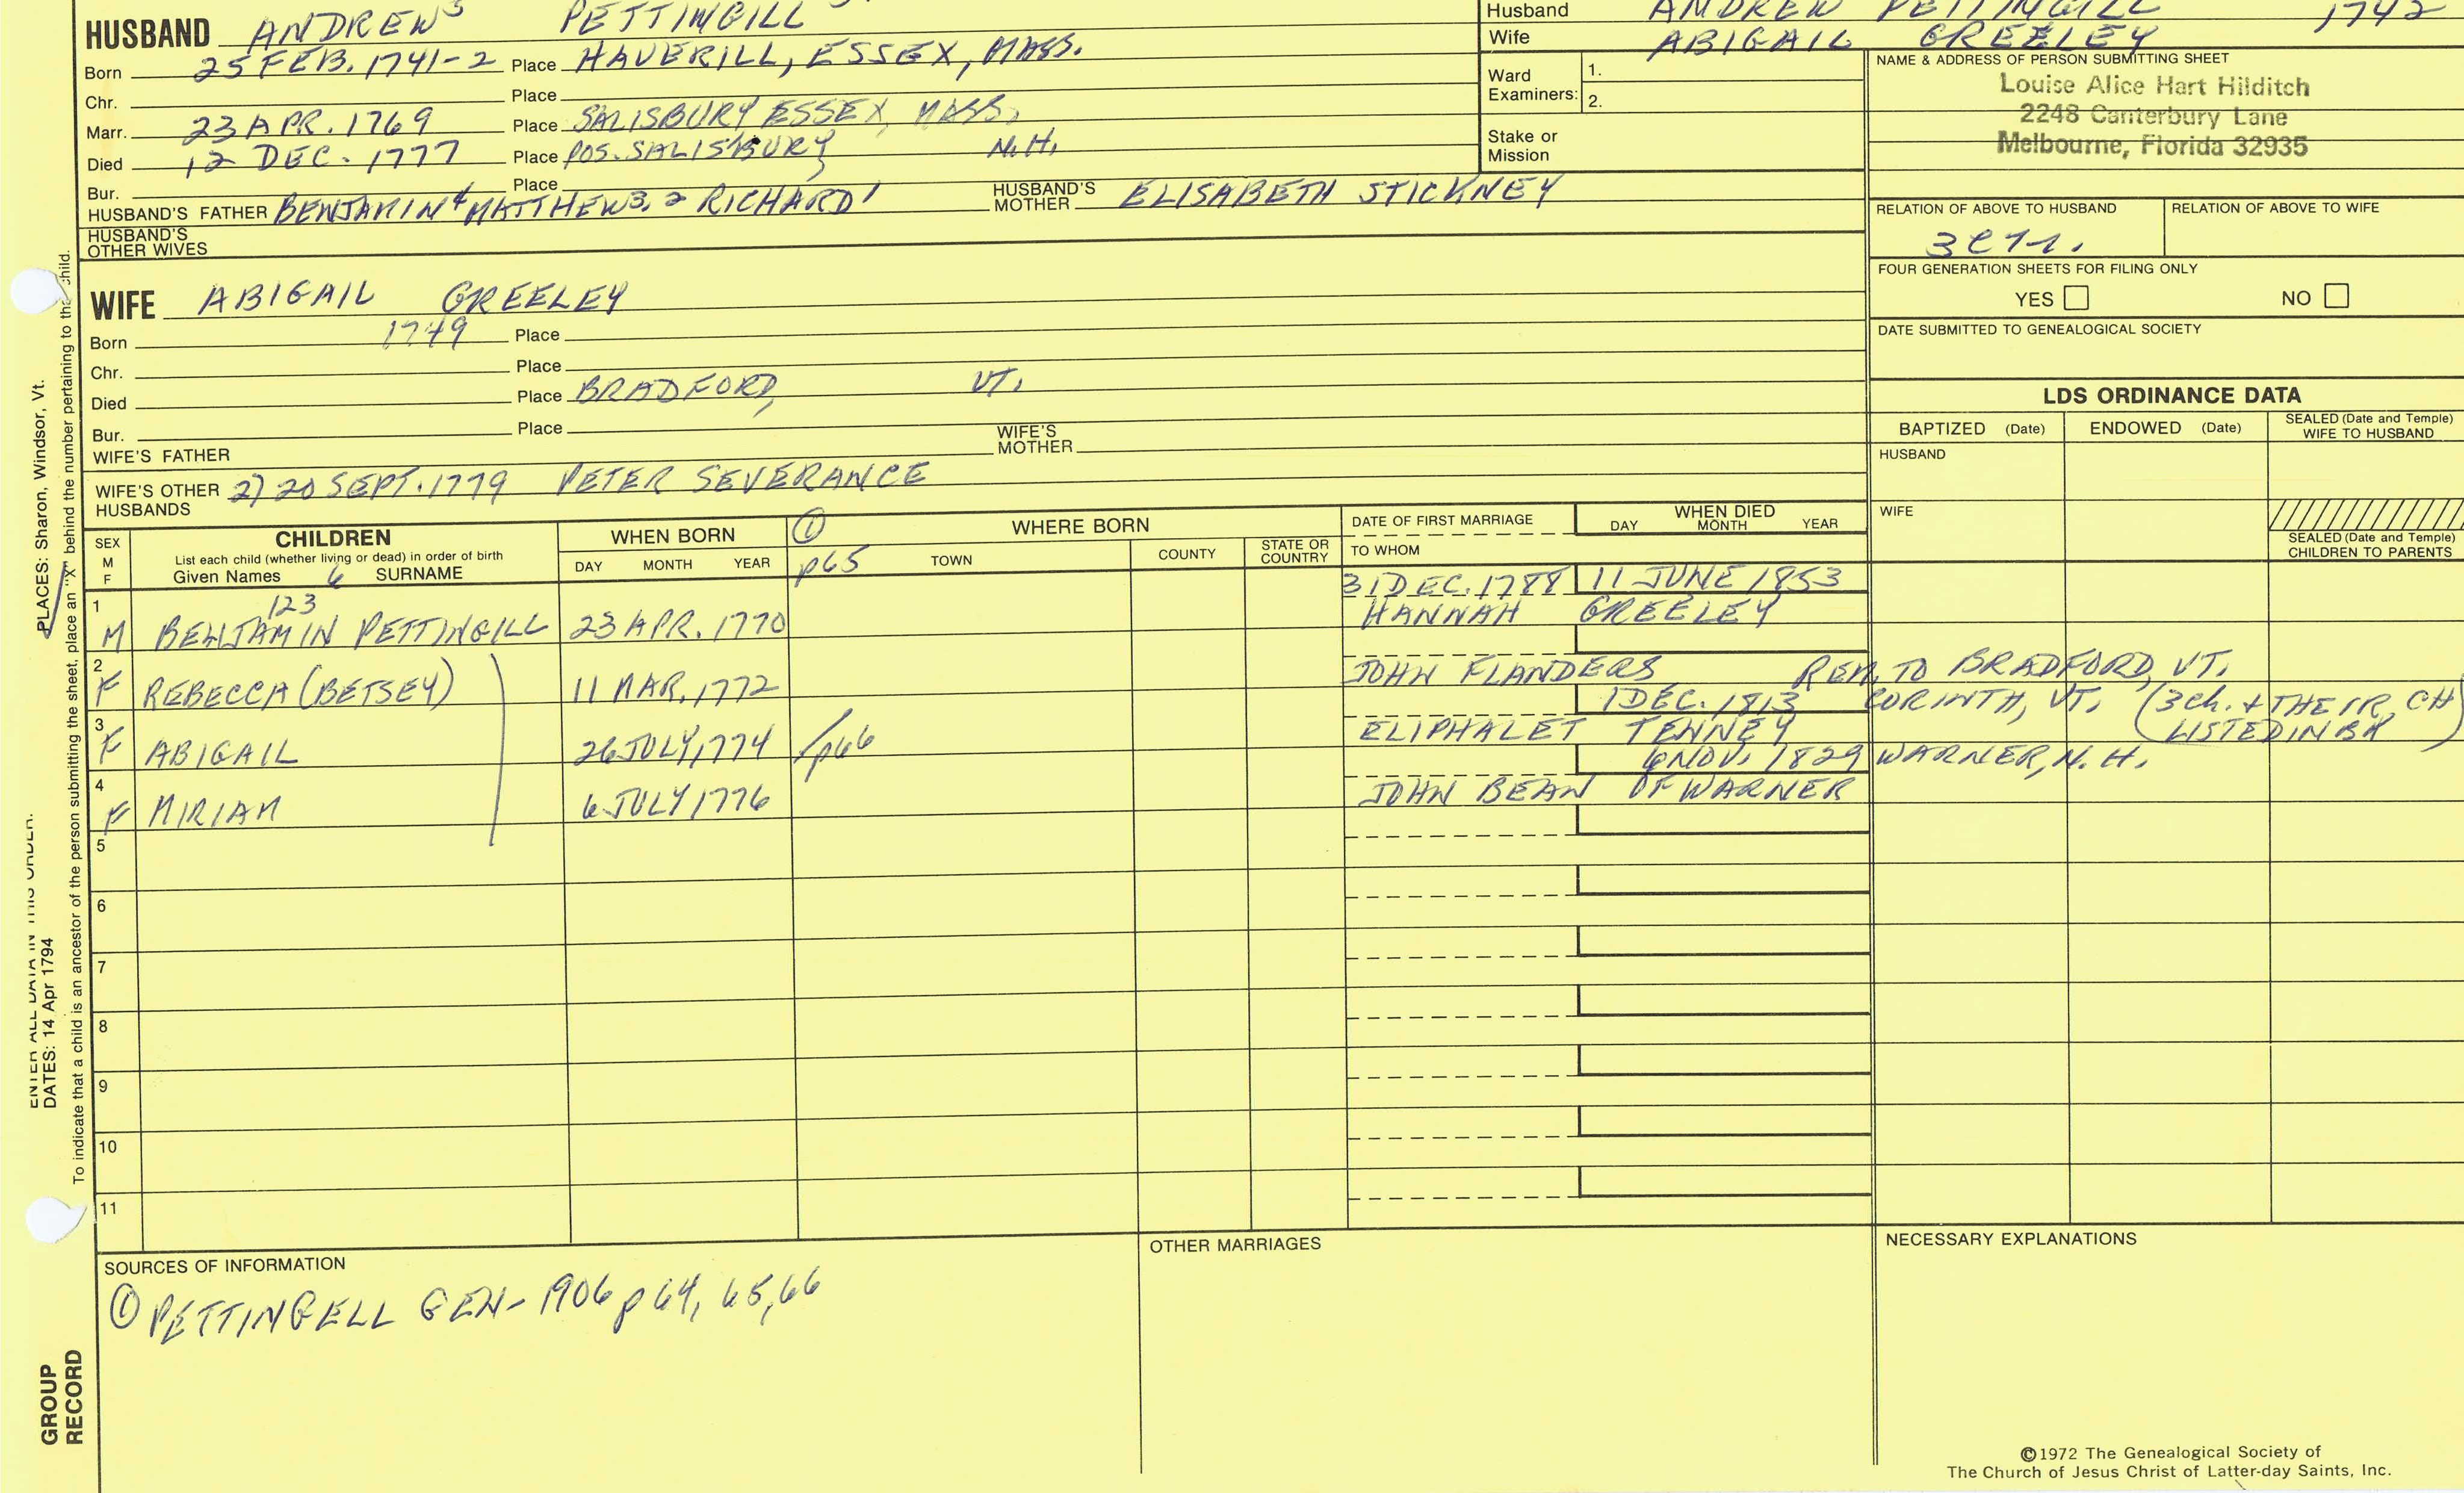 HUSBAND ANDREW5 PETTINGILL
Born 25 FEB. 1741-2 Place HAVERILL, ESSEX, MASS.
Chr. Place
Marr. 23 APR. 1769 Place SALISBURY ESSEX, MASS.
Died 12 DEC. 1777 Place POS. SALISBURY, N.H.
Bur. Place
HUSBAND'S FATHER BENJAMIN4 MATTHEW3, 2 RICHARD1 HUSBAND'S MOTHER ELISABETH STICKNEY
HUSBAND'S OTHER WIVES
Husband ANDREW PETTINGILL 1742
Wife ABIGAIL GREELEY
Ward Examiners: 1.
2.
Stake or Mission
NAME & ADDRESS OF PERSON SUBMITTING SHEET
Louise Alice Hart Hilditch
2248 Canterbury Lane
Melbourne, Florida 32935
RELATION OF ABOVE TO HUSBAND RELATION OF ABOVE TO WIFE
FOUR GENERATION SHEETS FOR FILING ONLY
YES NO
DATE SUBMITTED TO GENEALOGICAL SOCIETY
WIFE ABIGAIL GREELEY
Born 1749 Place
Chr. Place
Died Place BRADFORD, VT.
Bur. Place
WIFE'S FATHER WIFE'S MOTHER
WIFE'S OTHER HUSBANDS 2) 20 SEPT. 1779 PETER SEVERANCE
LDS ORDINANCE DATA
BAPTIZED (Date) ENDOWED (Date) SEALED (Date and Temple) WIFE TO HUSBAND
HUSBAND
WIFE
SEALED (Date and Temple) CHILDREN TO PARENTS
SEX M F
CHILDREN
List each child (whether living or dead) in order of birth
Given Names 6 SURNAME
WHEN BORN
DAY MONTH YEAR
① p65
WHERE BORN
TOWN COUNTY STATE OR COUNTRY
DATE OF FIRST MARRIAGE
TO WHOM
WHEN DIED
DAY MONTH YEAR
1 M 123 BENJAMIN PETTINGILL 23 APR. 1770 31 DEC. 1788 11 JUNE 1853
HANNAH GREELEY
2 F REBECCA (BETSEY) 11 MAR. 1772 JOHN FLANDERS REM. TO BRADFORD, VT.
3 F ABIGAIL 26 JULY, 1774 /p66 1 DEC. 1813 CORINTH, VT. (3 ch. + THEIR CH LISTED IN BK)
ELIPHALET TENNEY
4 F MIRIAM 6 JULY 1776 6 NOV. 1829 WARNER, N.H.
JOHN BEAN OF WARNER
5
6
7
8
9
10
11
SOURCES OF INFORMATION
① PETTINGELL GEN- 1906 p 64, 65, 66
OTHER MARRIAGES
NECESSARY EXPLANATIONS
©1972 The Genealogical Society of
The Church of Jesus Christ of Latter-day Saints, Inc.
PLACES: Sharon, Windsor, Vt.
ENTER ALL DATA IN THIS ORDER:
DATES: 14 Apr 1794
To indicate that a child is an ancestor of the person submitting the sheet, place an "X" behind the number pertaining to the child.
GROUP
RECORD